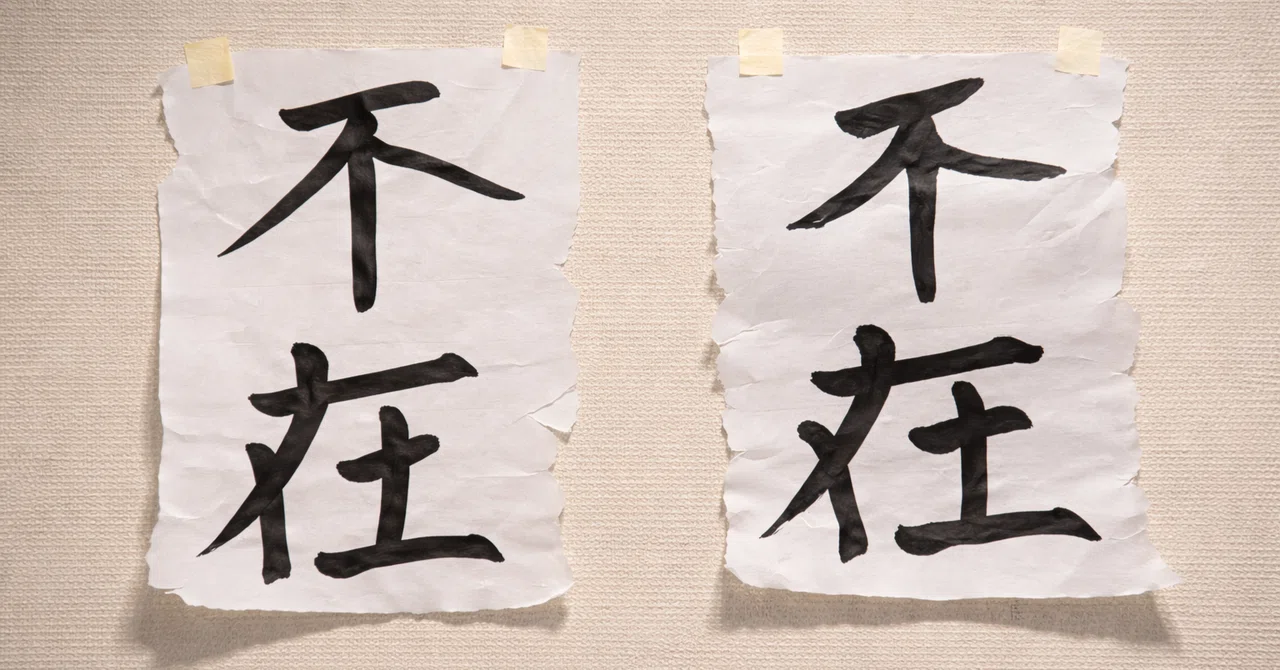 不在
不在